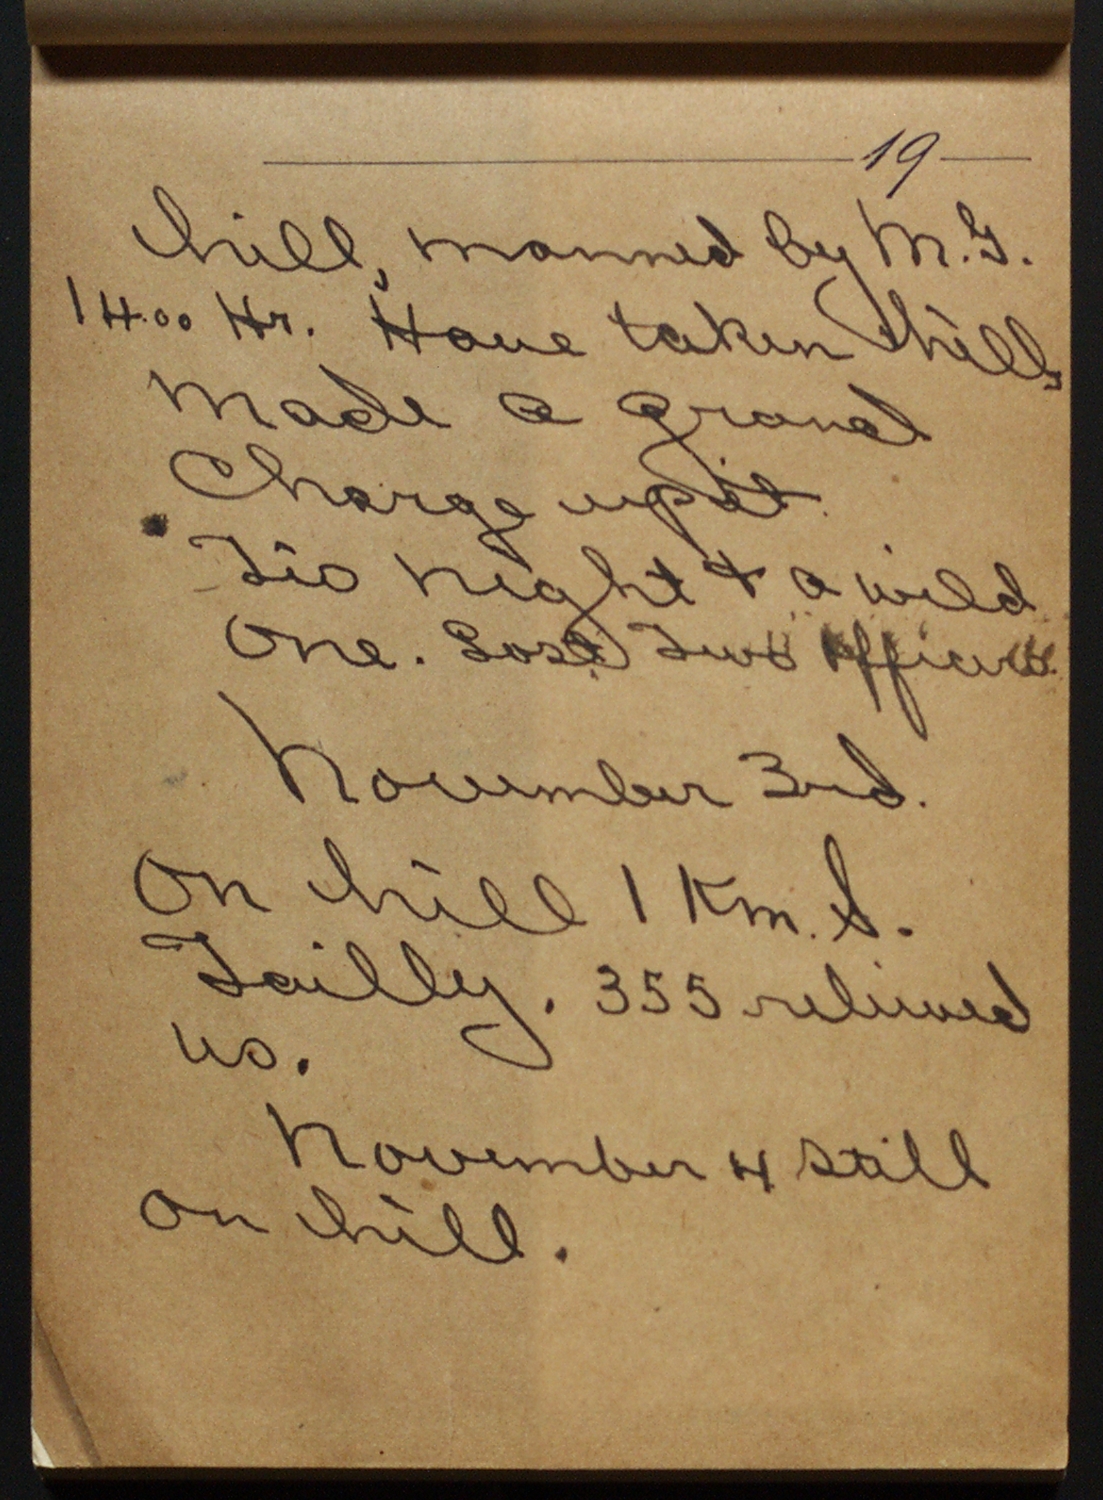 19
hill, manned by M.G.
1400 Hr. Have taken hill,
Made a grand
Charge up it.
Tis night & a wild
one. Lost Two officers.
November 3rd.
On hill 1 Km. S.
Tailly. 355 relieved
us.
November 4 still
on hill.